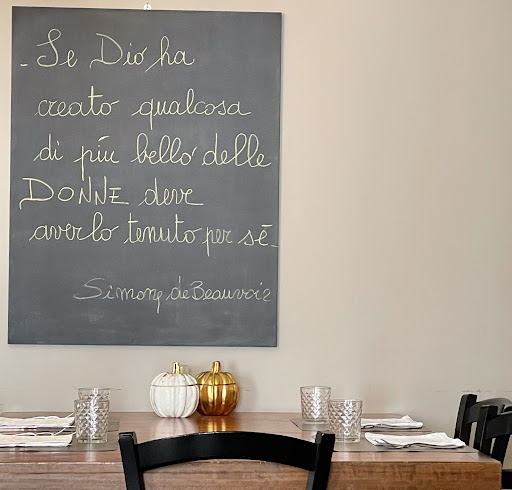 - Se Dio ha
creato qualcosa
di più bello delle
DONNE deve
averlo tenuto per sé -
Simone de Beauvoir